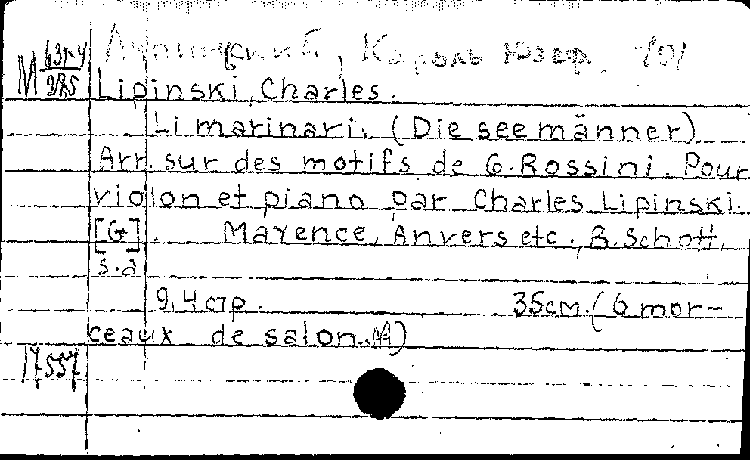 М 63г4/985 Липиньский, Кароль Юзеф.
Lipinski, Charles.
Li marinari. (Die seemänner)
Arr. sur des motifs de G. Rossini. Pour
violon et piano par Charles Lipinski.
[G]. Mayence, Anvers etc., B. Schott,
s.a
9,4 стр. 35см. (6 mor-
ceaux de salon.)
17557